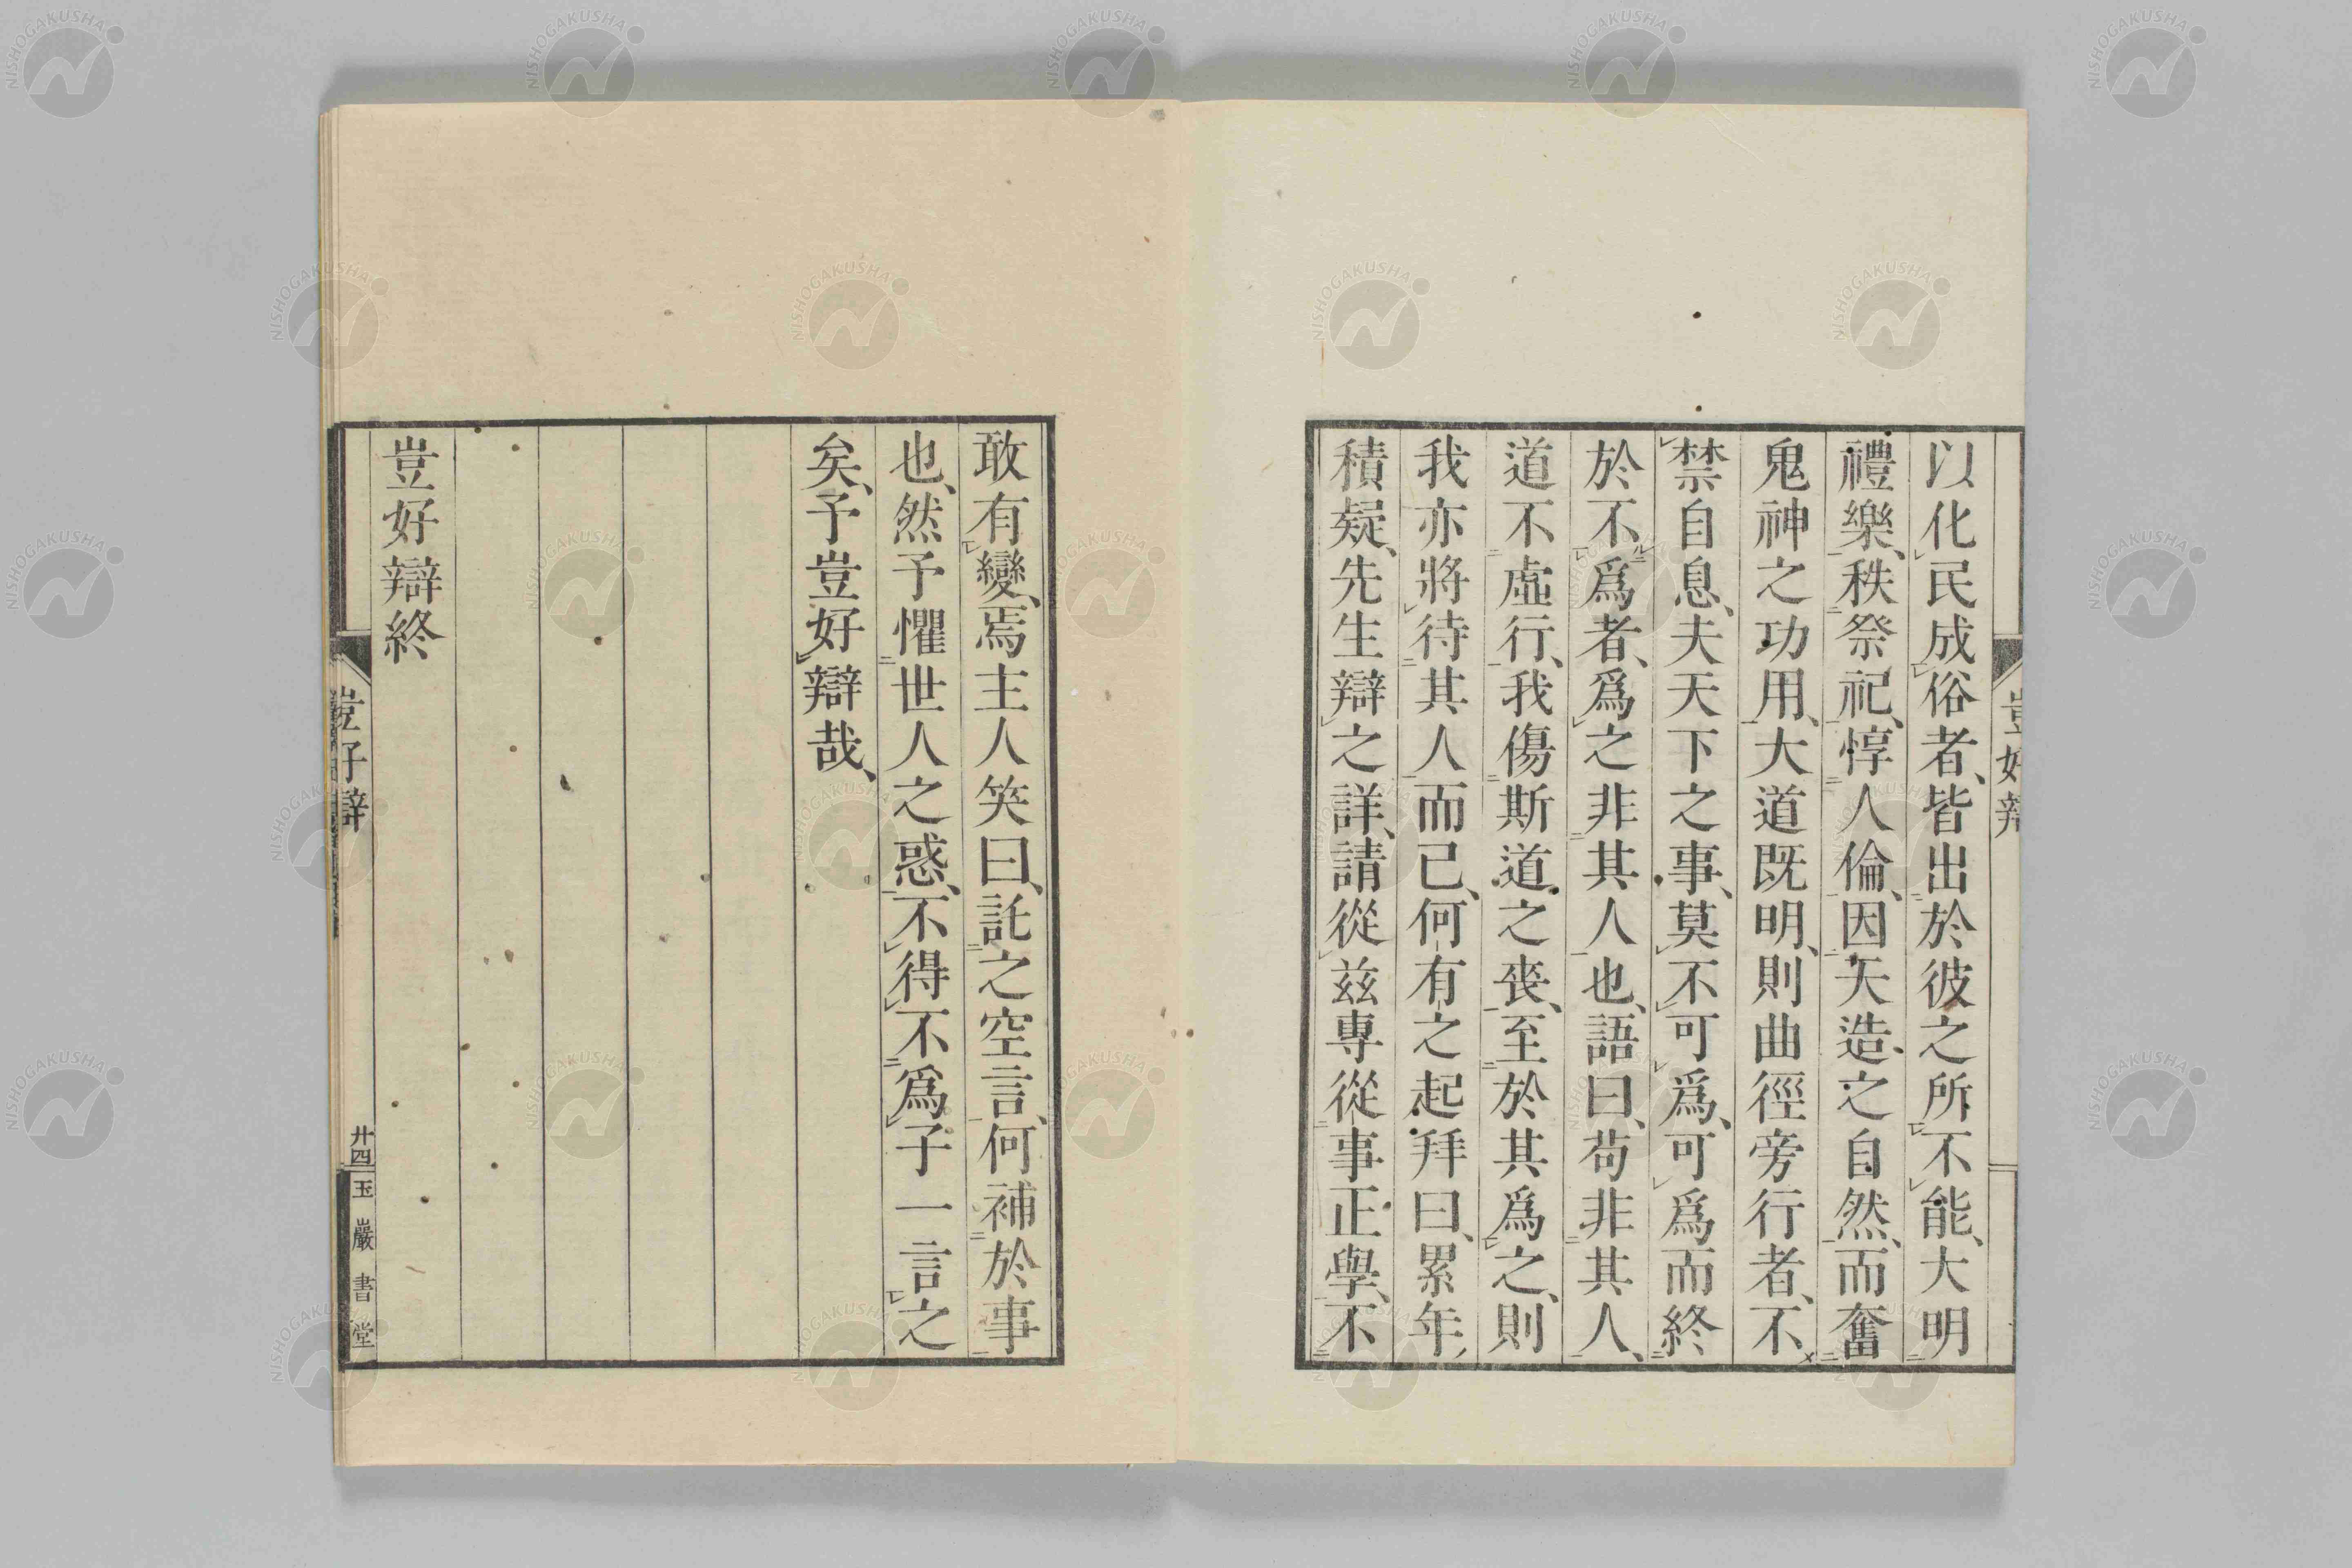 以化民成俗者、皆出於彼之所不能、大明
禮樂、秩祭祀、惇人倫、因天造之自然、而奮
鬼神之功用、大道既明、則曲徑旁行者、不
禁自息、夫天下之事、莫不可爲、可爲而終
於不爲者、爲之非其人也、語曰、苟非其人、
道不虛行、我傷斯道之喪、至於其爲之、則
我亦將待其人而已、何有之起拜曰、累年
積疑、先生辯之詳、請從茲專從事正學、不
敢有變、焉主人笑曰、託之空言、何補於事
也、然予懼世人之惑、不得不爲子一言之
矣、予豈好辯哉、
豈好辯終
豈好辯
廿四
玉巖書堂
豈好辯
NISHOGAKUSHA